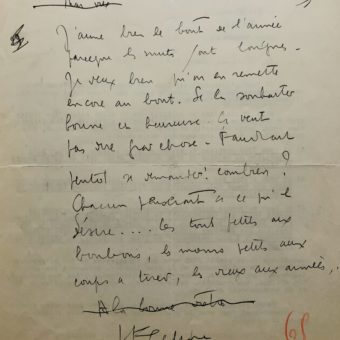 J'aime bien le bout de l'année
parceque les nuits sont longues.
Je veux bien qu'on en remette
encore au bout. Se la souhaiter
bonne et heureuse. Ça veut
pas dire grand chose. Faudrait
plutot se demander: combien?
Chacun prendrait ce qu'il
désire.... les tout petits aux
bonbons, les moins petits aux
coups à tirer, les vieux aux années,..
A la bonne
68